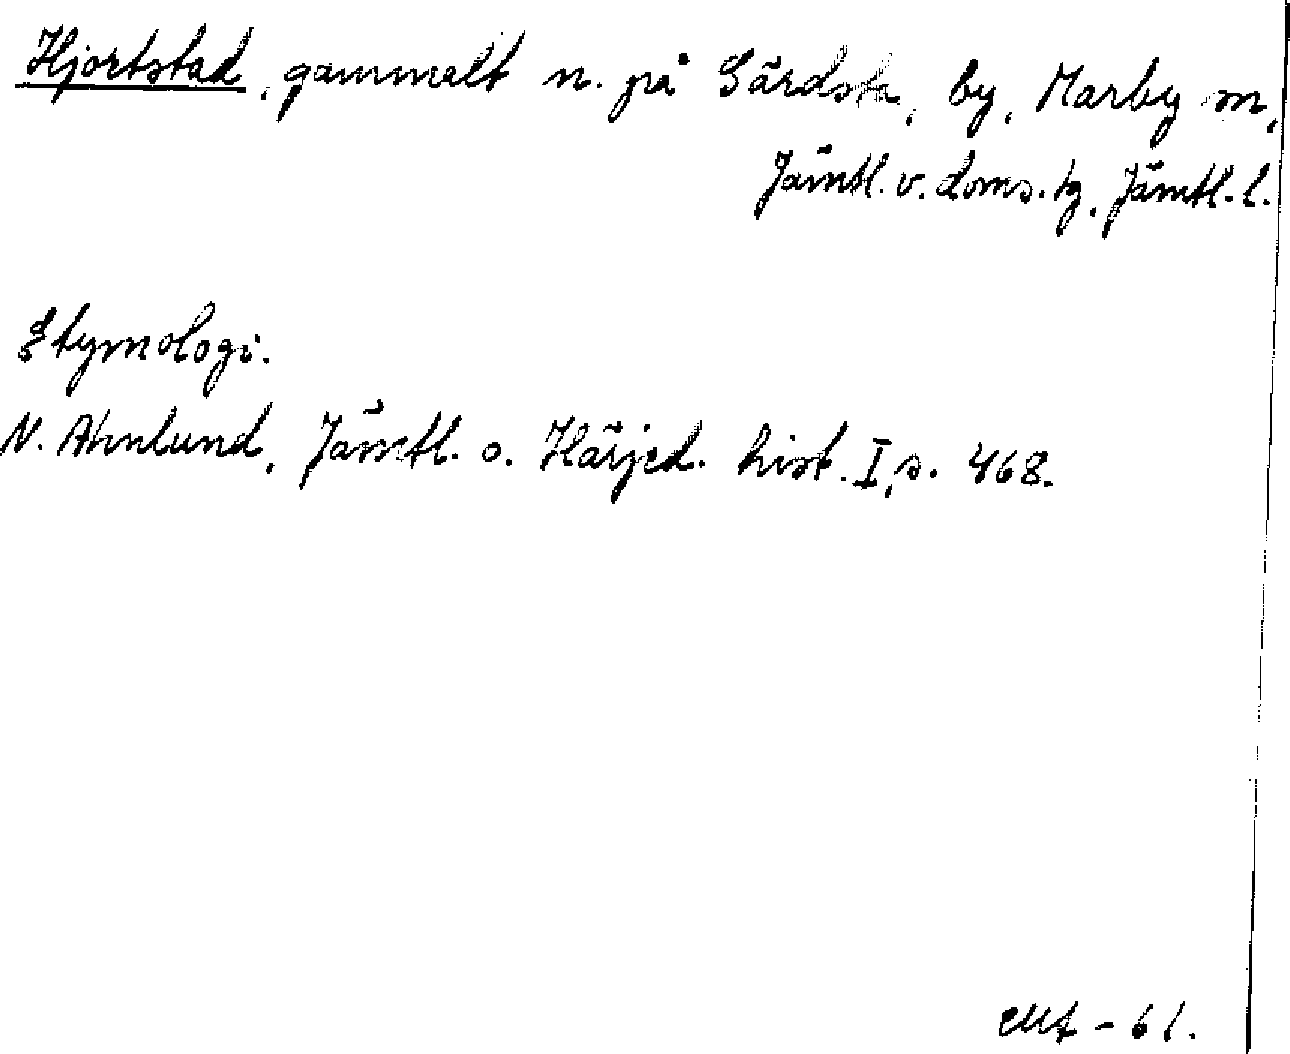 Hjortstad, gammalt n. på Särdsta, by, Marby sn,
Jämtl. v. doms. tg, Jämtl. l.
Etymologi.
N. Ahnlund, Jämtl. o. Härjed. hist. I, s. 468.
- 61.